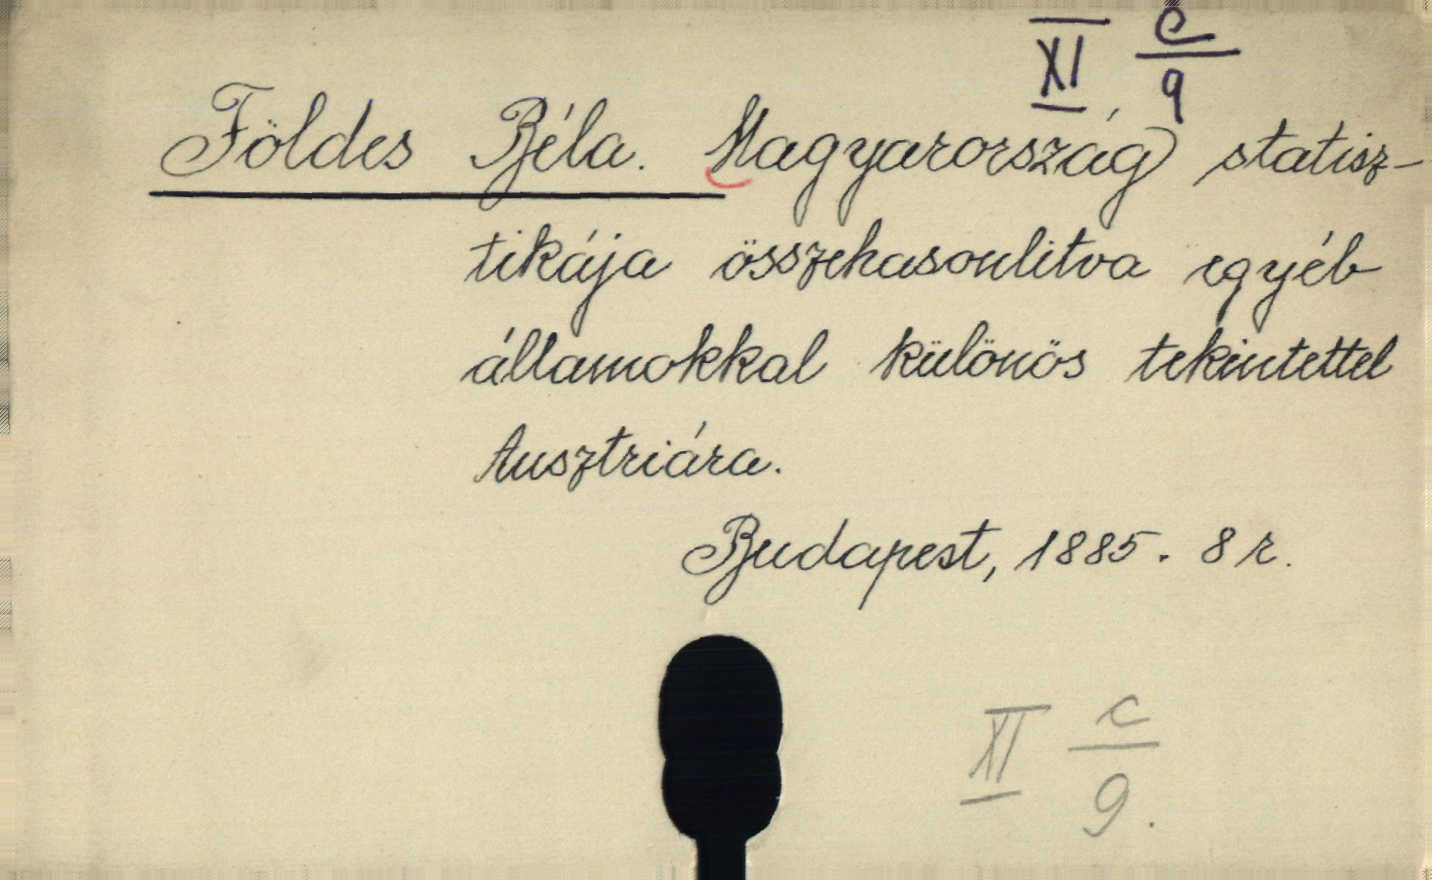 XI c/9
Földes Béla. Magyarország statisz-
tikája összehasonlitva egyéb
államokkal különös tekintettel
Ausztriára.
Budapest, 1885. 8 r.
XI c/9.